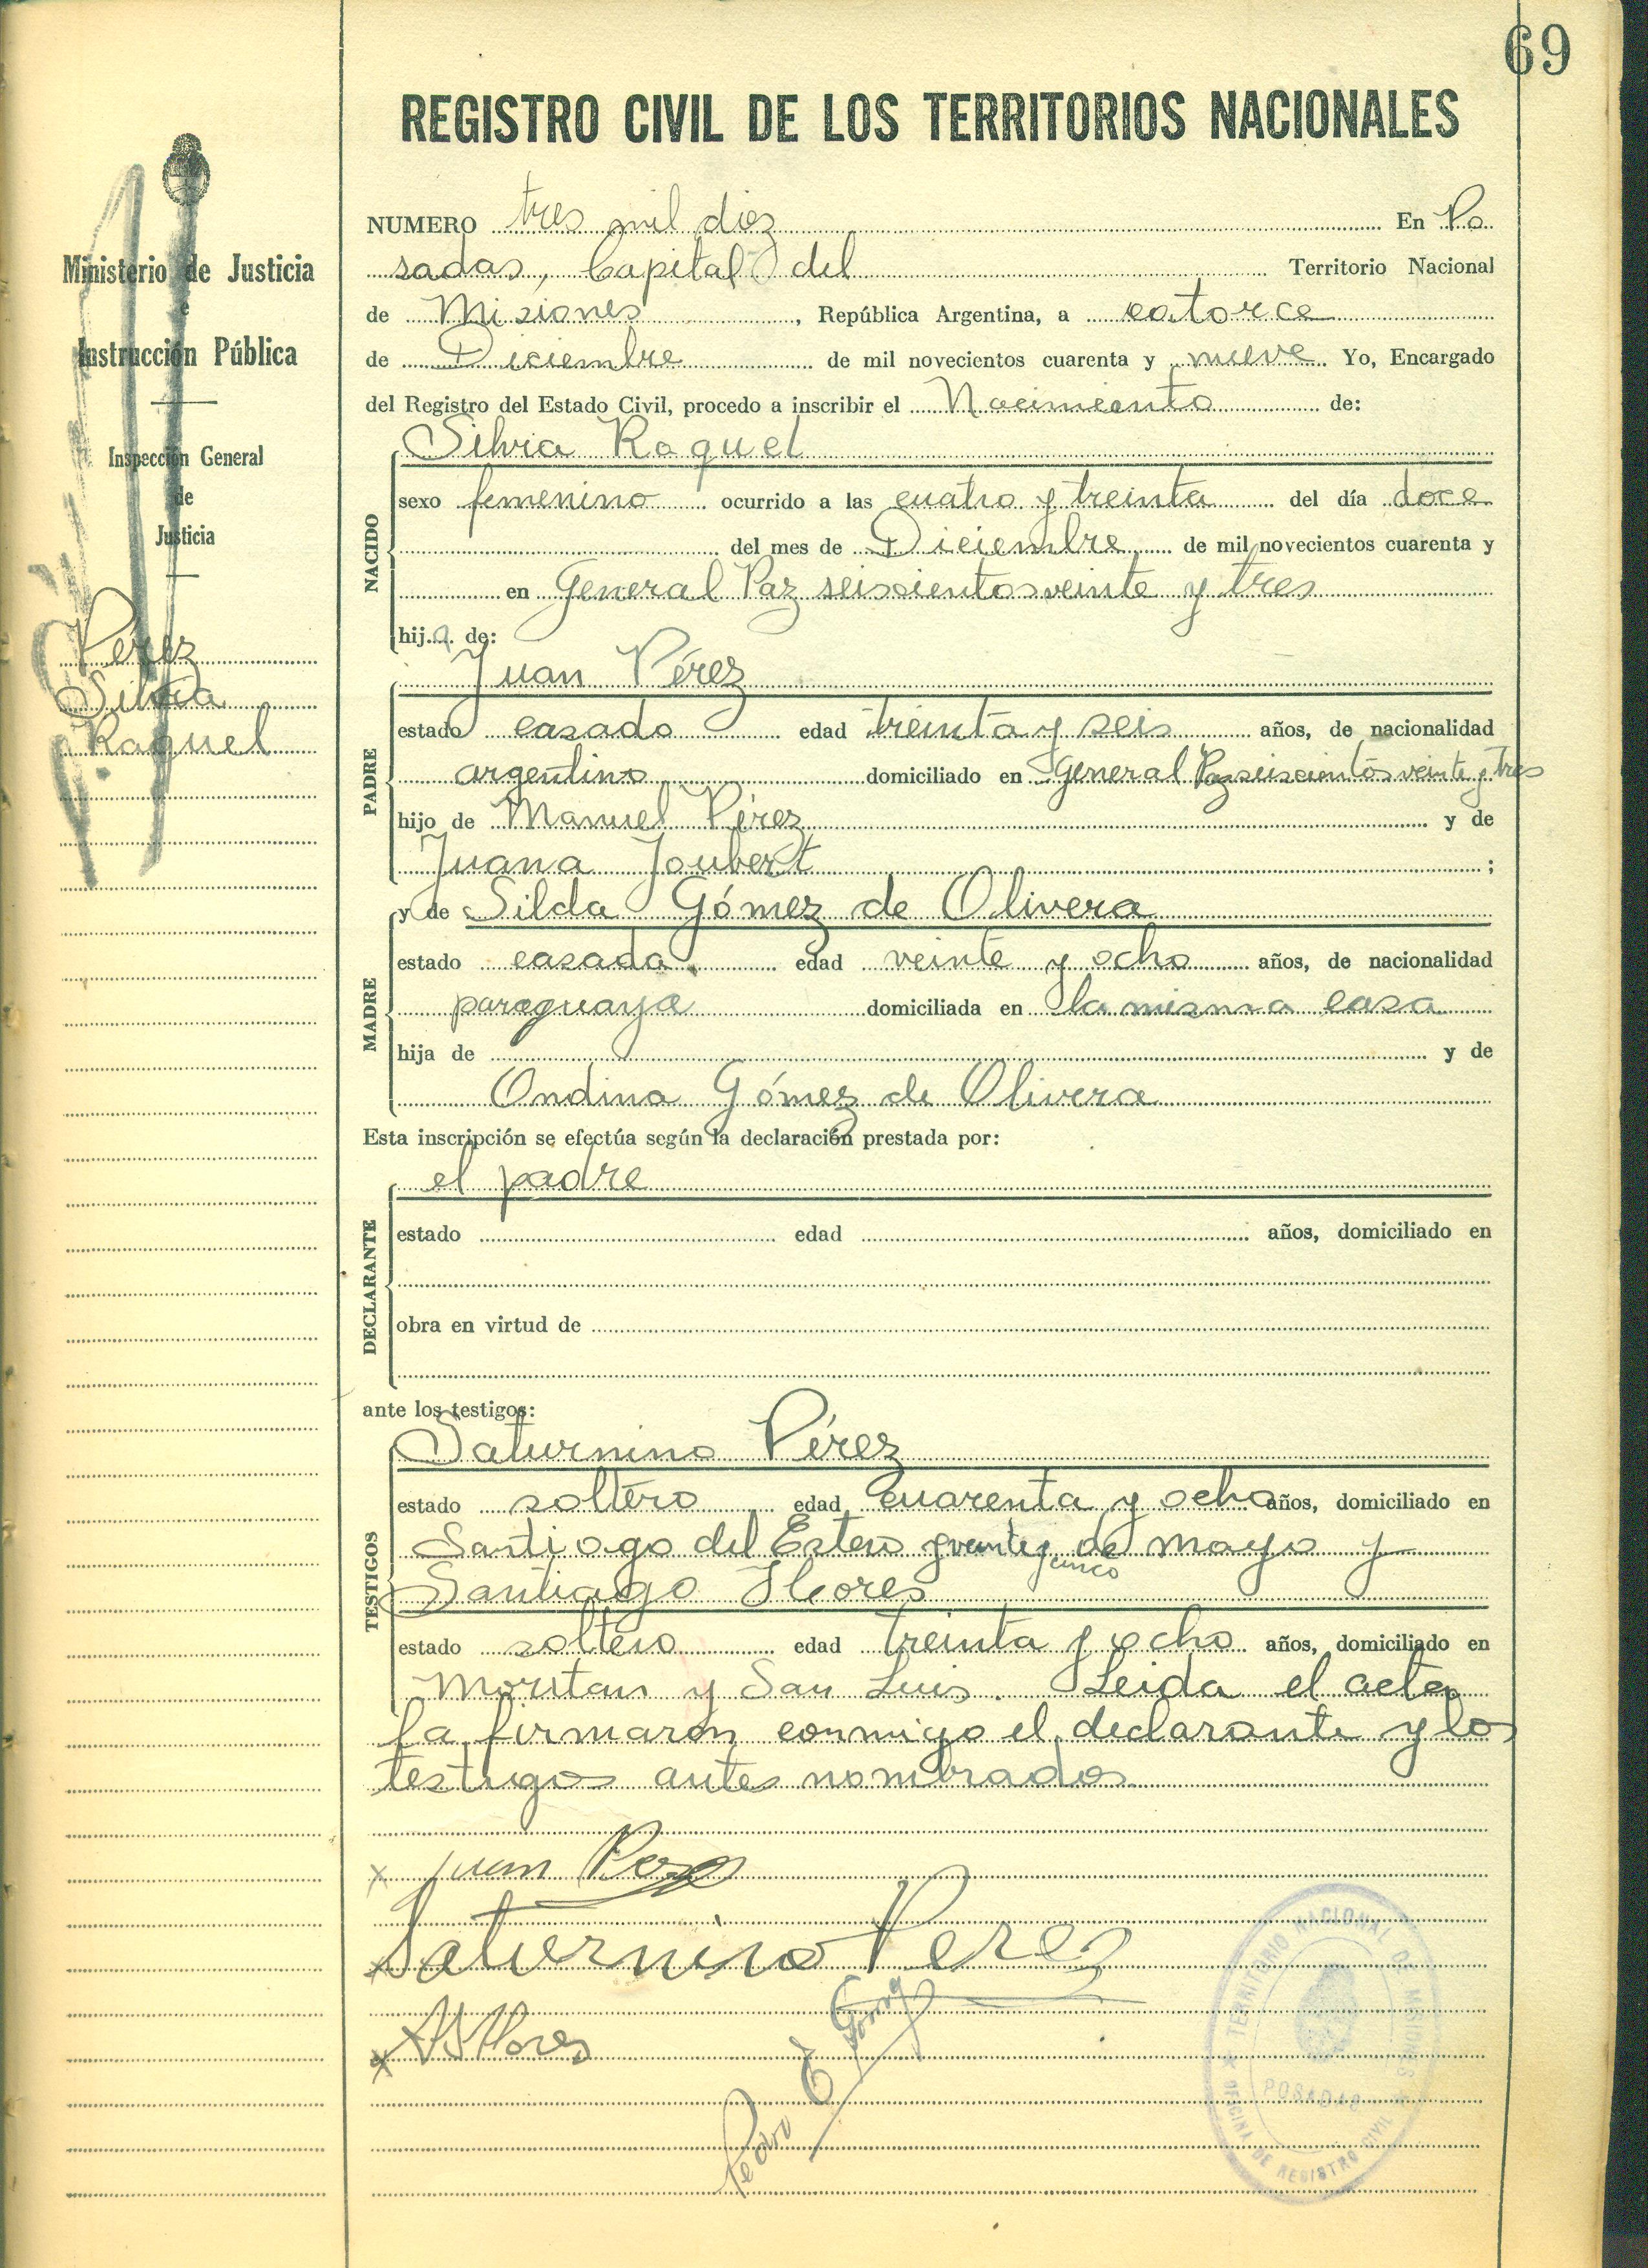 69
REGISTRO CIVIL DE LOS TERRITORIOS NACIONALES
Ministerio de Justicia
e
Instrucción Pública
Inspección General
de
Justicia
Pérez
Silvia
Raquel
NUMERO tres mil diez En Po
sadas, Capital del Territorio Nacional
de Misiones, República Argentina, a catorce
de Diciembre de mil novecientos cuarenta y nueve Yo, Encargado
del Registro del Estado Civil, procedo a inscribir el Nacimiento de:
Silvia Raquel
NACIDO
sexo femenino ocurrido a las cuatro y treinta del día doce
del mes de Diciembre de mil novecientos cuarenta y
en General Paz seiscientos veinte y tres
hija de:
Juan Pérez
PADRE
estado casado edad treinta y seis años, de nacionalidad
argentino domiciliado en General Paz seiscientos veinte y tres
hijo de Manuel Pérez y de
Juana Joubert ;
y de Silda Gómez de Olivera
MADRE
estado casada edad veinte y ocho años, de nacionalidad
paraguaya domiciliada en la misma casa
hija de y de
Ondina Gómez de Olivera
Esta inscripción se efectúa según la declaración prestada por:
el padre
DECLARANTE
estado edad años, domiciliado en
obra en virtud de
ante los testigos:
Saturnino Pérez
TESTIGOS
estado soltero edad cuarenta y ocho años, domiciliado en
Santiago del Estero y veinte y cinco de mayo y
Santiago Flores
estado soltero edad treinta y ocho años, domiciliado en
y San Luis. Leida el acta
la firmaron conmigo el declarante y los
testigos antes nombrados
x Juan Perez
x Saturnino Perez
x Flores
Pedro E
TERRITORIO NACIONAL DE MISIONES
POSADAS
OFICINA DE REGISTRO CIVIL